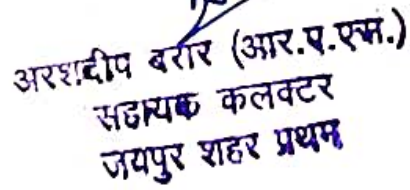 अरशदीप बरार (आर.ए.एस.)
सहायक कलक्टर
जयपुर शहर प्रथम